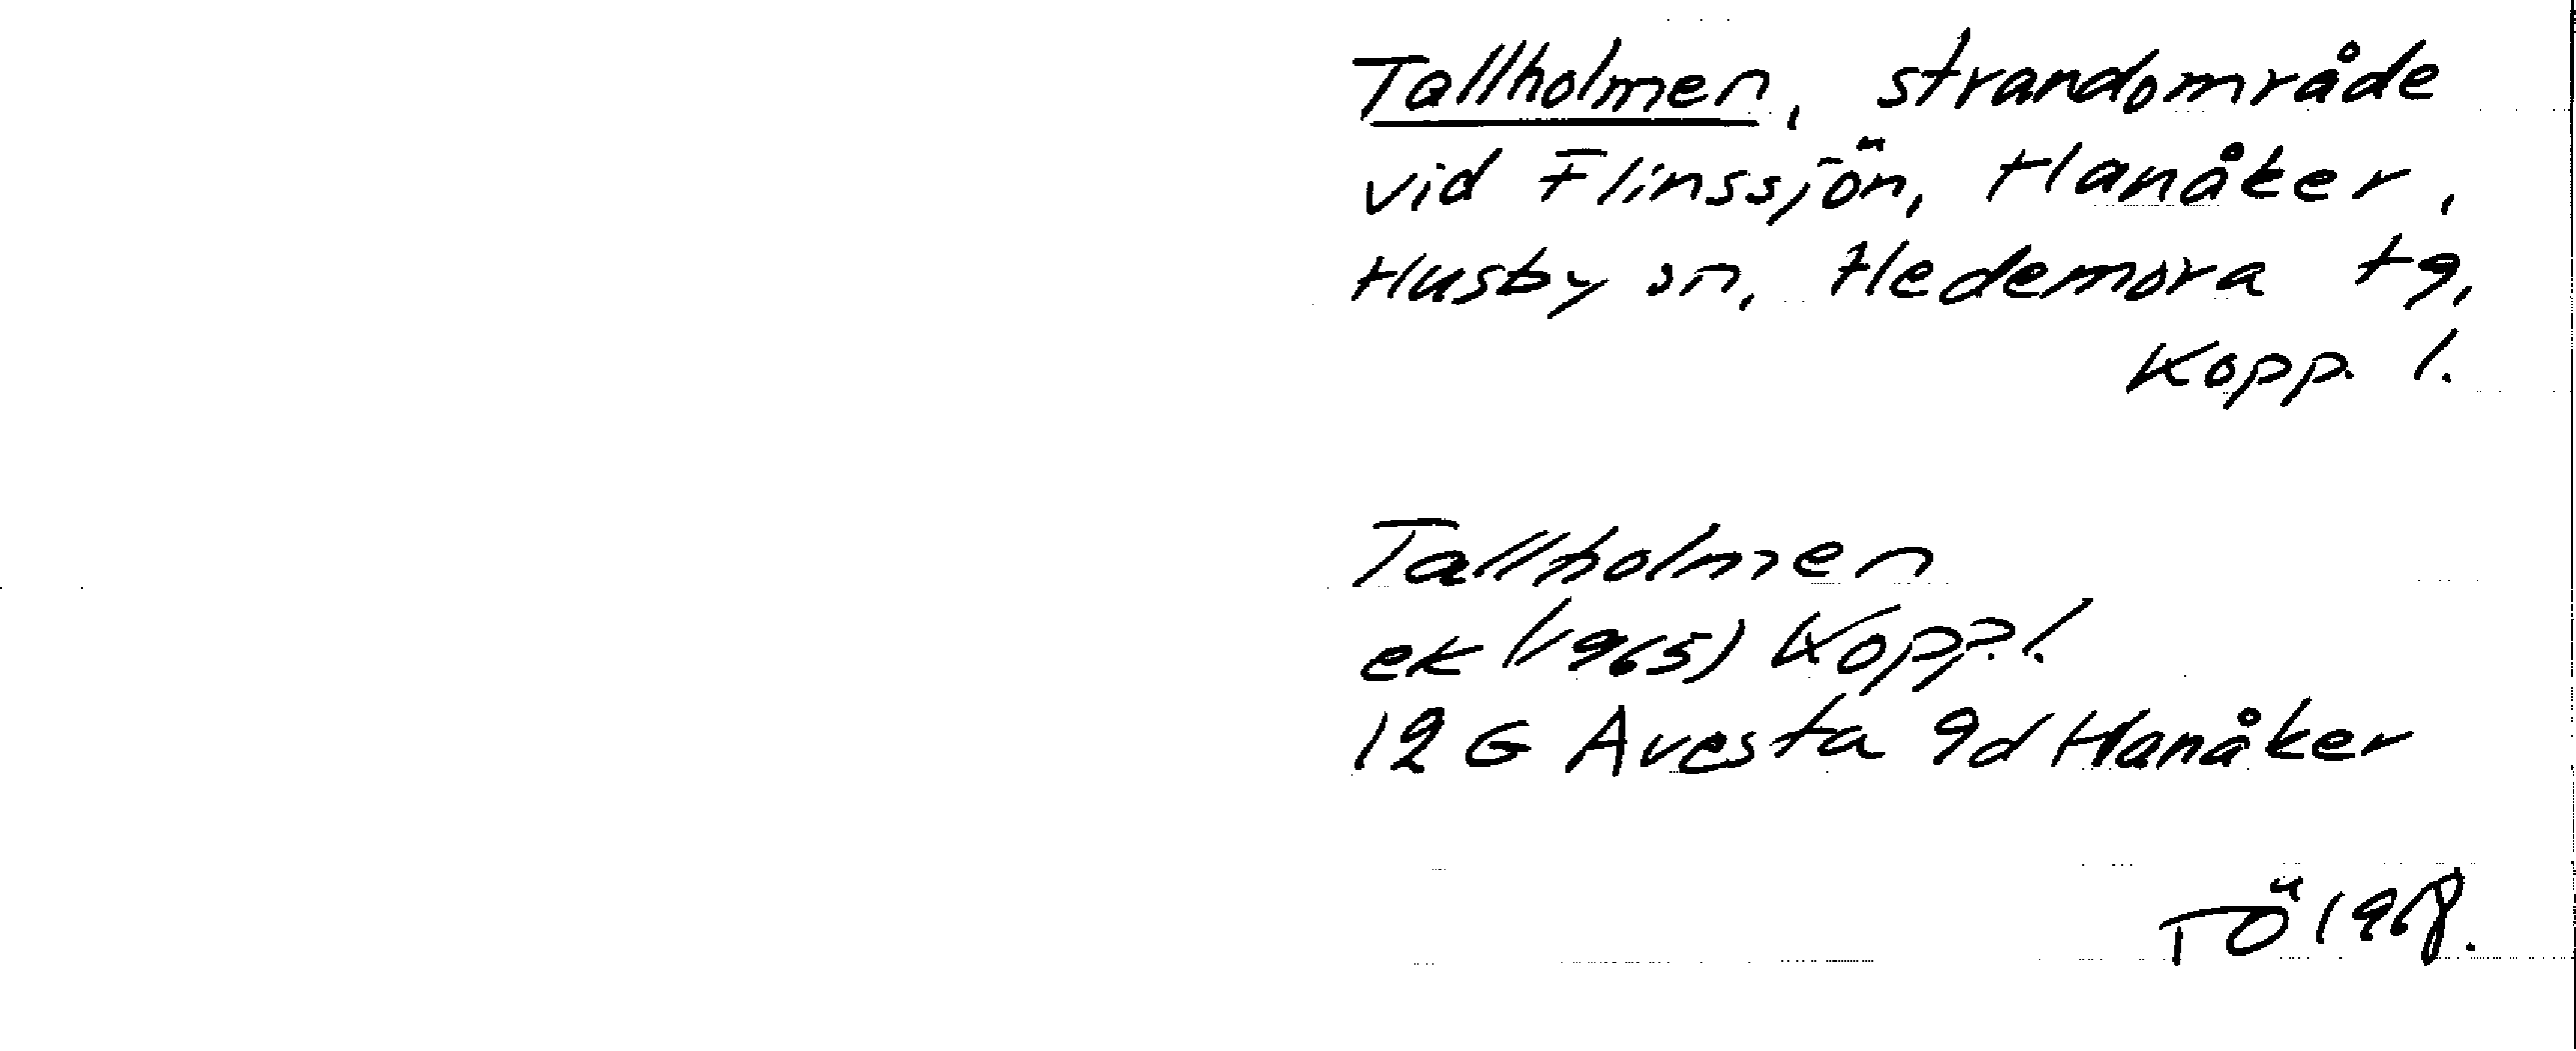 Tallholmen, strandområde
vid Flinssjön, Hanåker,
Husby sn, Hedemora tg,
Kopp. l.
Tallholmen
ek (1965) Kopp. l.
12 G Avesta 9d Hanåker
TÖ 1968.